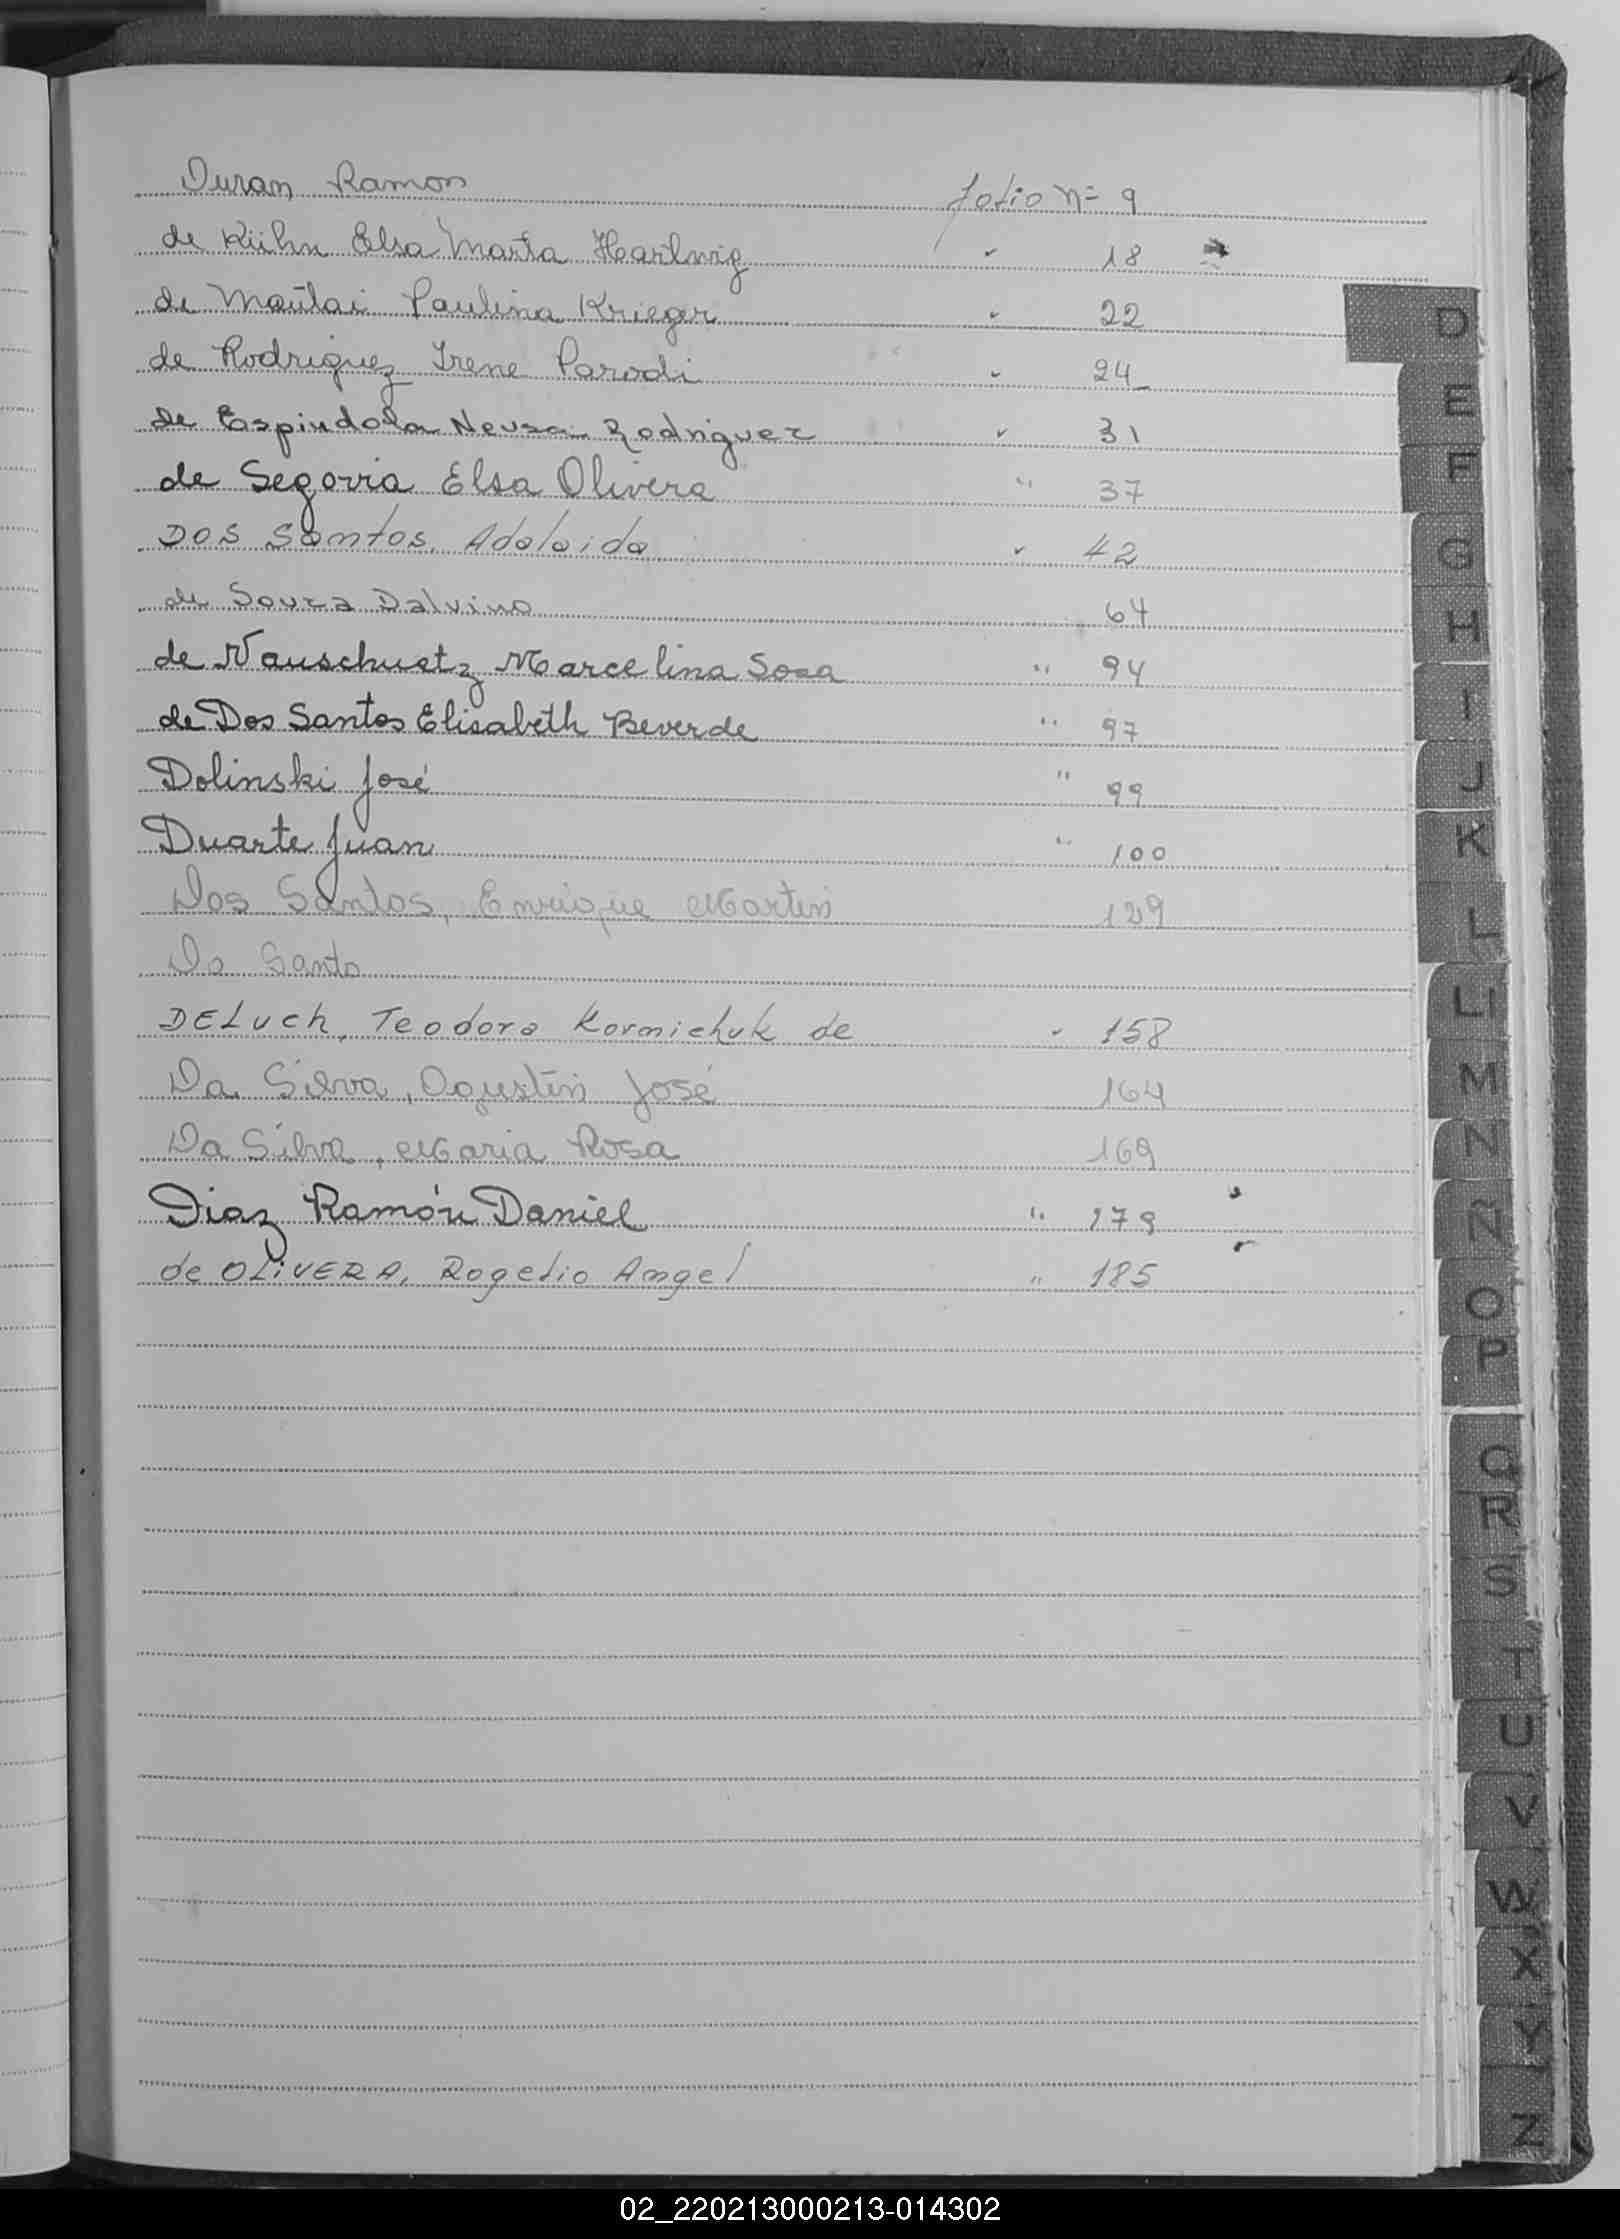 Duran Ramon folio Nº 9
de Kühn Elsa Marta Hartwig " 18
de Maülai Paulina Krieger " 22
de Rodriguez Irene Parodi " 24
de Espindola Neusa Rodriguez " 31
de Segovia Elsa Olivera " 37
DOS Santos, Adelaida " 42
de Souza Dalvino 64
de Nauschuetz Marcelina Sosa " 94
de Dos Santos Elisabeth Beverde " 97
Dolinski José " 99
Duarte Juan " 100
Dos Santos, Enrique Martin 129
Do Santo
DELuch, Teodora Kornichuk de " 158
Da Silva, Agustín José 164
Da Silva, Maria Rosa 169
Diaz Ramón Daniel " 179
de OLiVERA, Rogelio Angel " 185
D
E
F
G
H
I
J
K
L
LI
M
N
Ñ
O
P
Q
R
S
T
U
V
W
X
Y
Z
02_220213000213-014302